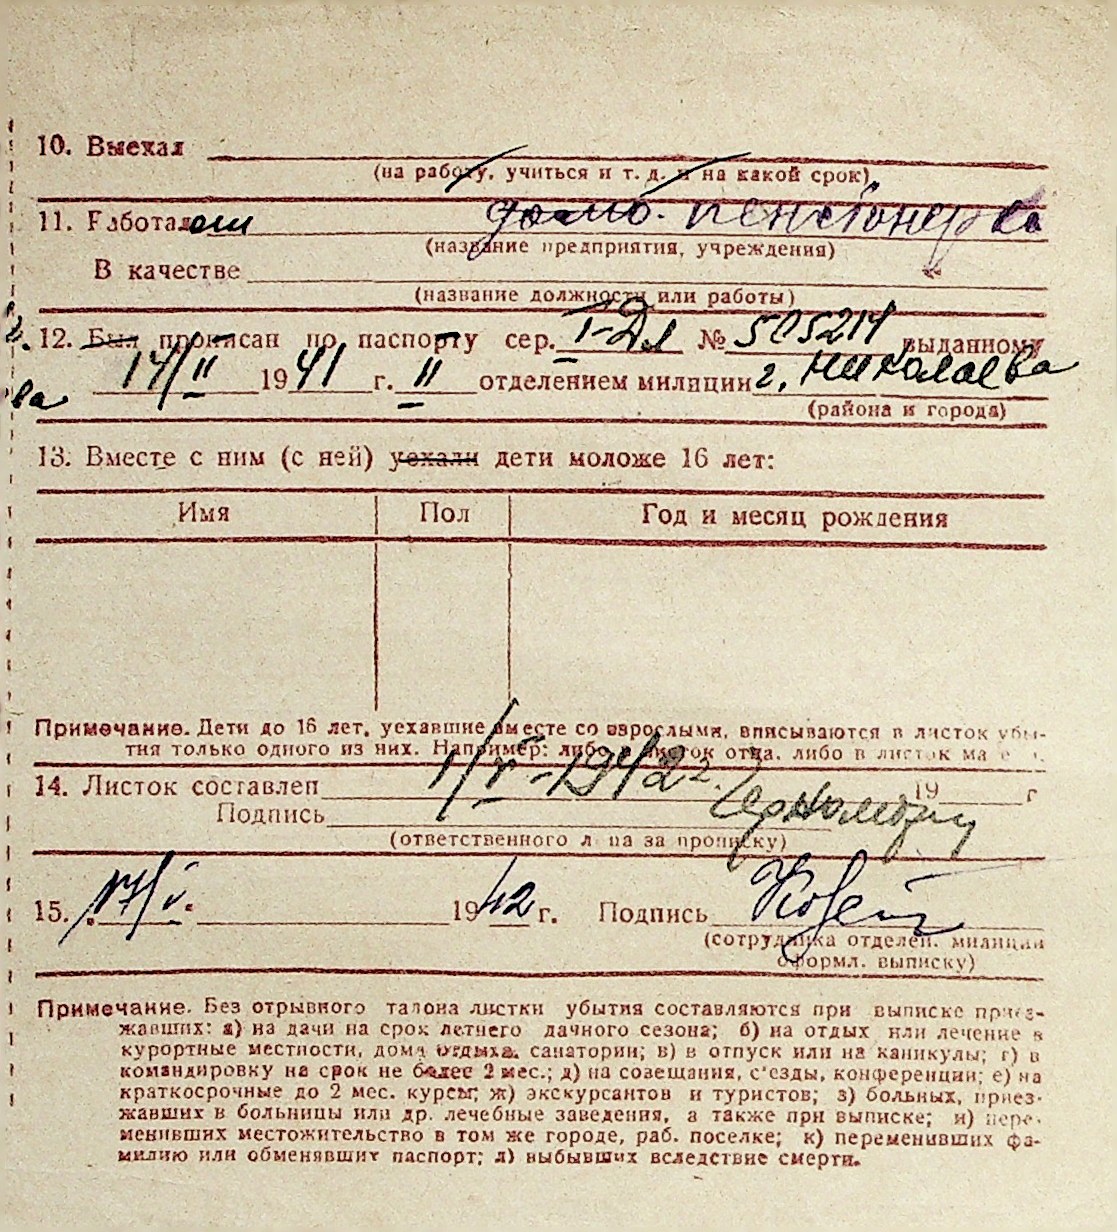 10. Выехал
(на работу, учиться и т. д. и на какой срок)
11. Работал домо. пенсионерка
(название предприятия, учреждения)
В качестве
(название должности или работы)
12. Был прописан по паспорту сер. I-Дл № 505214 выданному
ва 14/II 1941 г. II отделением милиции г. Николаева
(района и города)
13. Вместе с ним (с ней) уехали дети моложе 16 лет:
Имя Пол Год и месяц рождения
Примечание. Дети до 16 лет, уехавшие вместе со взрослыми, вписываются в листок убы-
тия только одного из них. Например: либо в листок отца, либо в листок ма
14. Листок составлен 1/V-1942 г. 19 г
Подпись
(ответственного лица за прописку)
15. 17/V. 1942 г. Подпись
(сотрудника отделен. милиции
оформл. выписку)
Примечание. Без отрывного талона листки убытия составляются при выписке приез-
жавших: а) на дачи на срок летнего дачного сезона; б) на отдых или лечение в
курортные местности, дома отдыха, санатории; в) в отпуск или на каникулы; г) в
командировку на срок не более 2 мес.; д) на совещания, с'езды, конференции; е) на
краткосрочные до 2 мес. курсы; ж) экскурсантов и туристов; з) больных, приез-
жавших в больницы или др. лечебные заведения, а также при выписке; и) пере-
менивших местожительство в том же городе, раб. поселке; к) переменивших фа-
милию или обменявших паспорт; л) выбывших вследствие смерти.